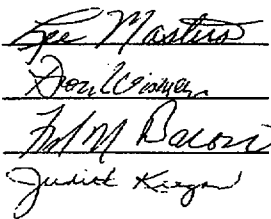 Lee Masters
Don Wismer
M Bacon
Judith Keegan